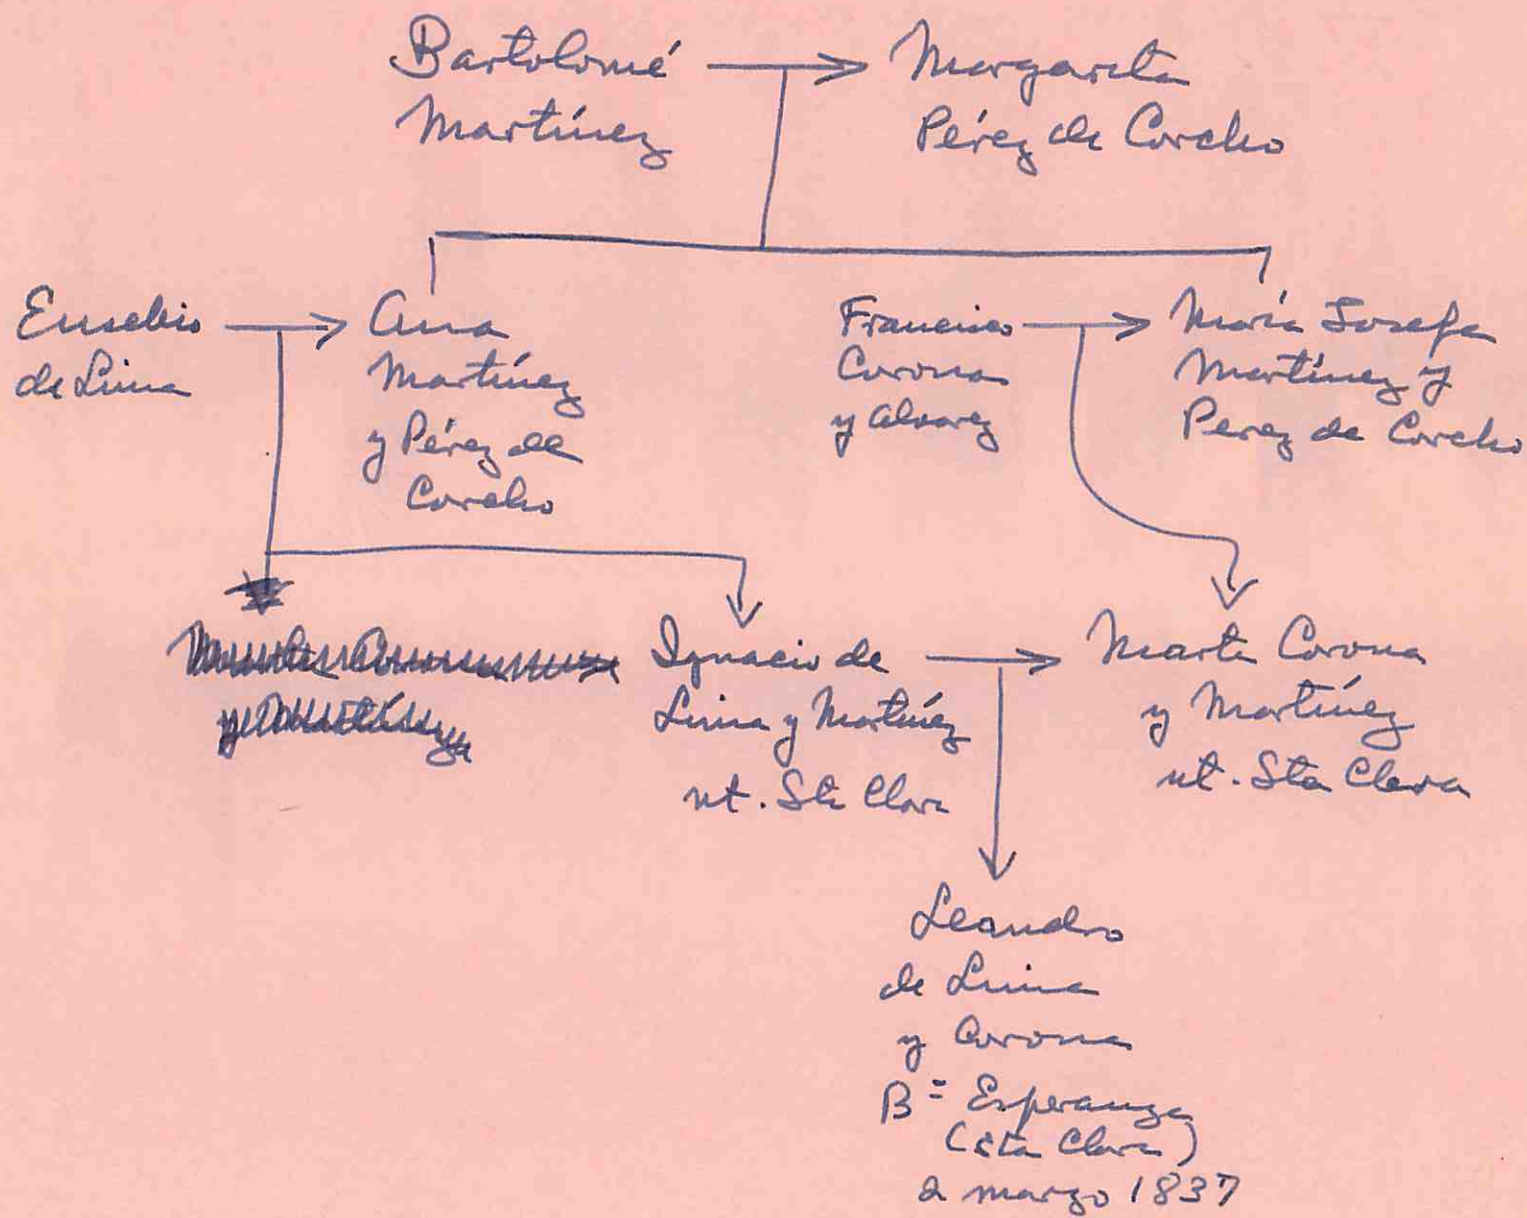 Bartolomé
Martínez
Margarita
Pérez de Corcho
Eusebio
de Luna
Ana
Martínez
y Pérez de
Corcho
Francisco
Corona
y Alvarez
María Josefa
Martínez y
Perez de Corcho
Ignacio de
Luna y Martínez
nt. Sta Clara
Marta Corona
y Martínez
nt. Sta Clara
Leandro
de Luna
y Corona
B = Esperanza
(Sta Clara)
2 marzo 1837